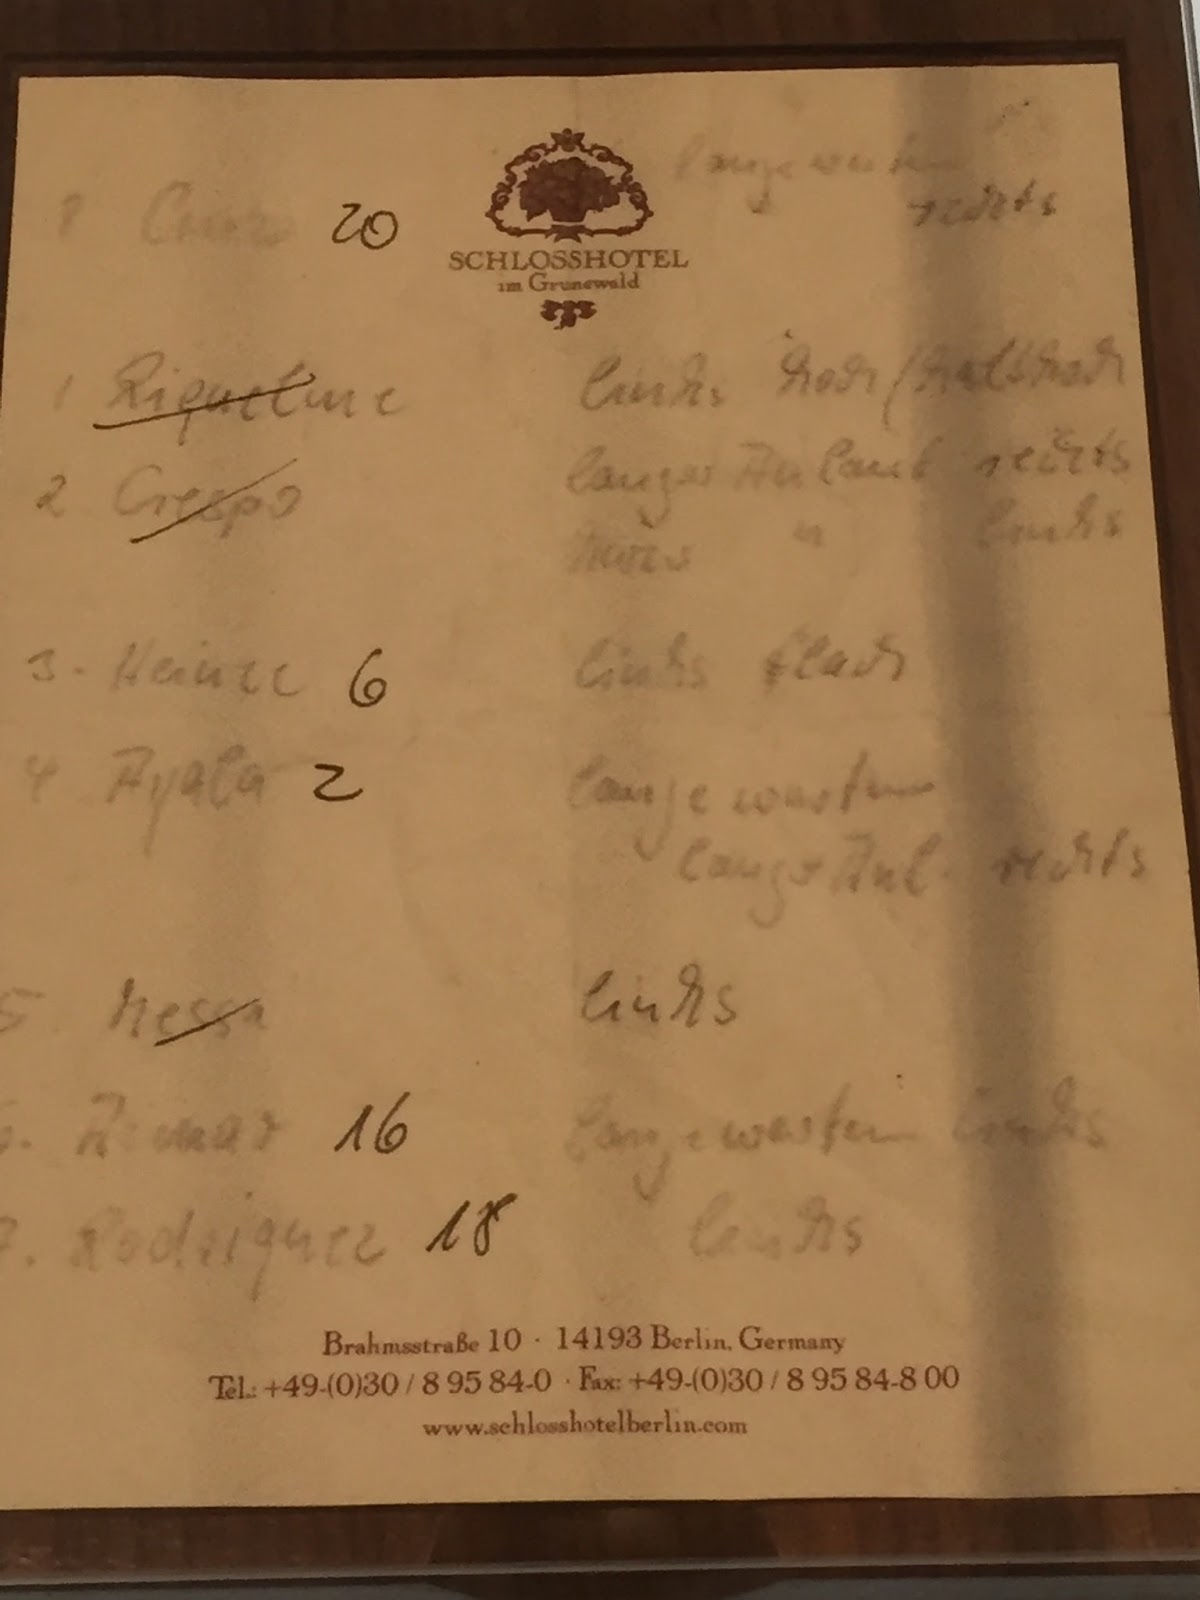 lange warten
8 Cruz 20
rechts
SCHLOSSHOTEL
im Grunewald
1 Riquelme links hoch/halbhoch
2 Crespo langer Anlauf rechts
kurzer " links
3. Heinze 6 links flach
4 Ayala 2 lange warten
langer Anl. rechts
5 Messi links
6. Aimar 16 lange warten links
7. Rodriguez 18 links
Brahmsstraße 10 · 14193 Berlin, Germany
Tel.: +49-(0)30 / 8 95 84-0 · Fax: +49-(0)30 / 8 95 84-8 00
www.schlosshotelberlin.com